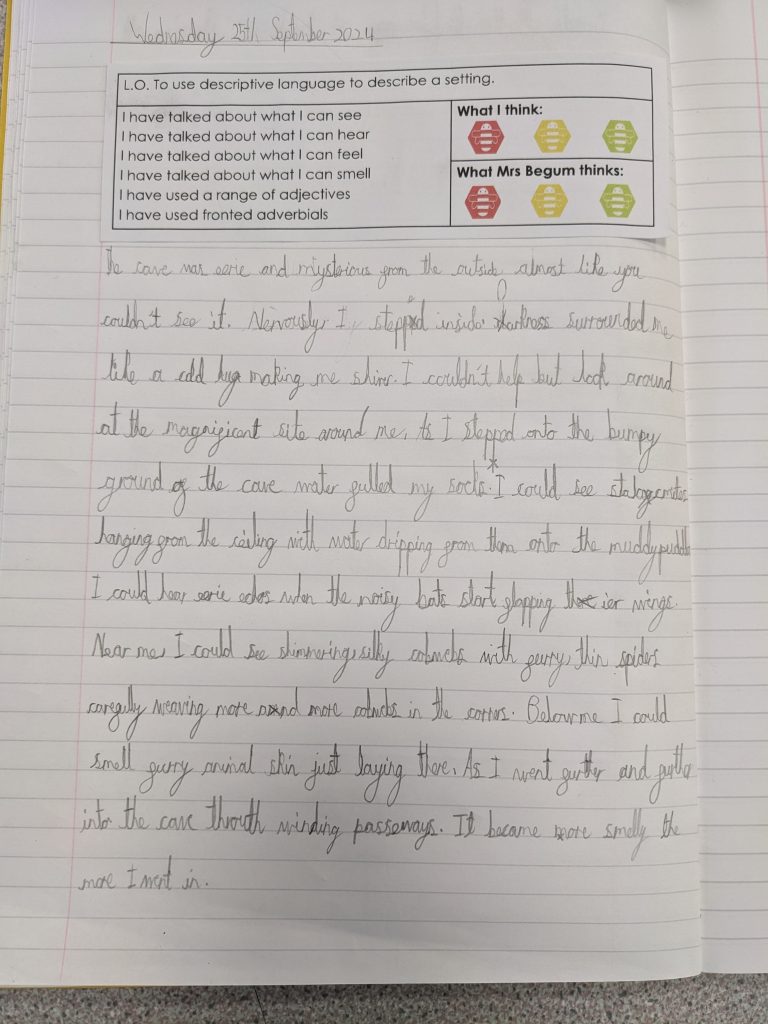 Wednesday 25th September 2024
L.O. To use descriptive language to describe a setting.
I have talked about what I can see
I have talked about what I can hear
I have talked about what I can feel
I have talked about what I can smell
I have used a range of adjectives
I have used fronted adverbials
What I think:
What Mrs Begum thinks:
The cave was eerie and mysterious from the outside almost like you
couldn't see it. Nervously, I, stepped inside. darkness surrounded me
like a cold hug making me shiver. I couldn't help but look around
at the magnificant site around me. As I stepped onto the bumpy
ground of the cave water fulled my socks.* I could see
hanging from the ceiling with water dripping from them onto the muddy puddle
I could hear eerie echos when the noisy bats start flapping their wings.
Near me, I could see shimmering, silky cobwebs with furry, thin spiders
carefully weaving more and more cobwebs in the corners. Below me I could
smell furry animal skin just laying there. As I went further and further
into the cave through winding passeways. It became more smelly the
more I went in.